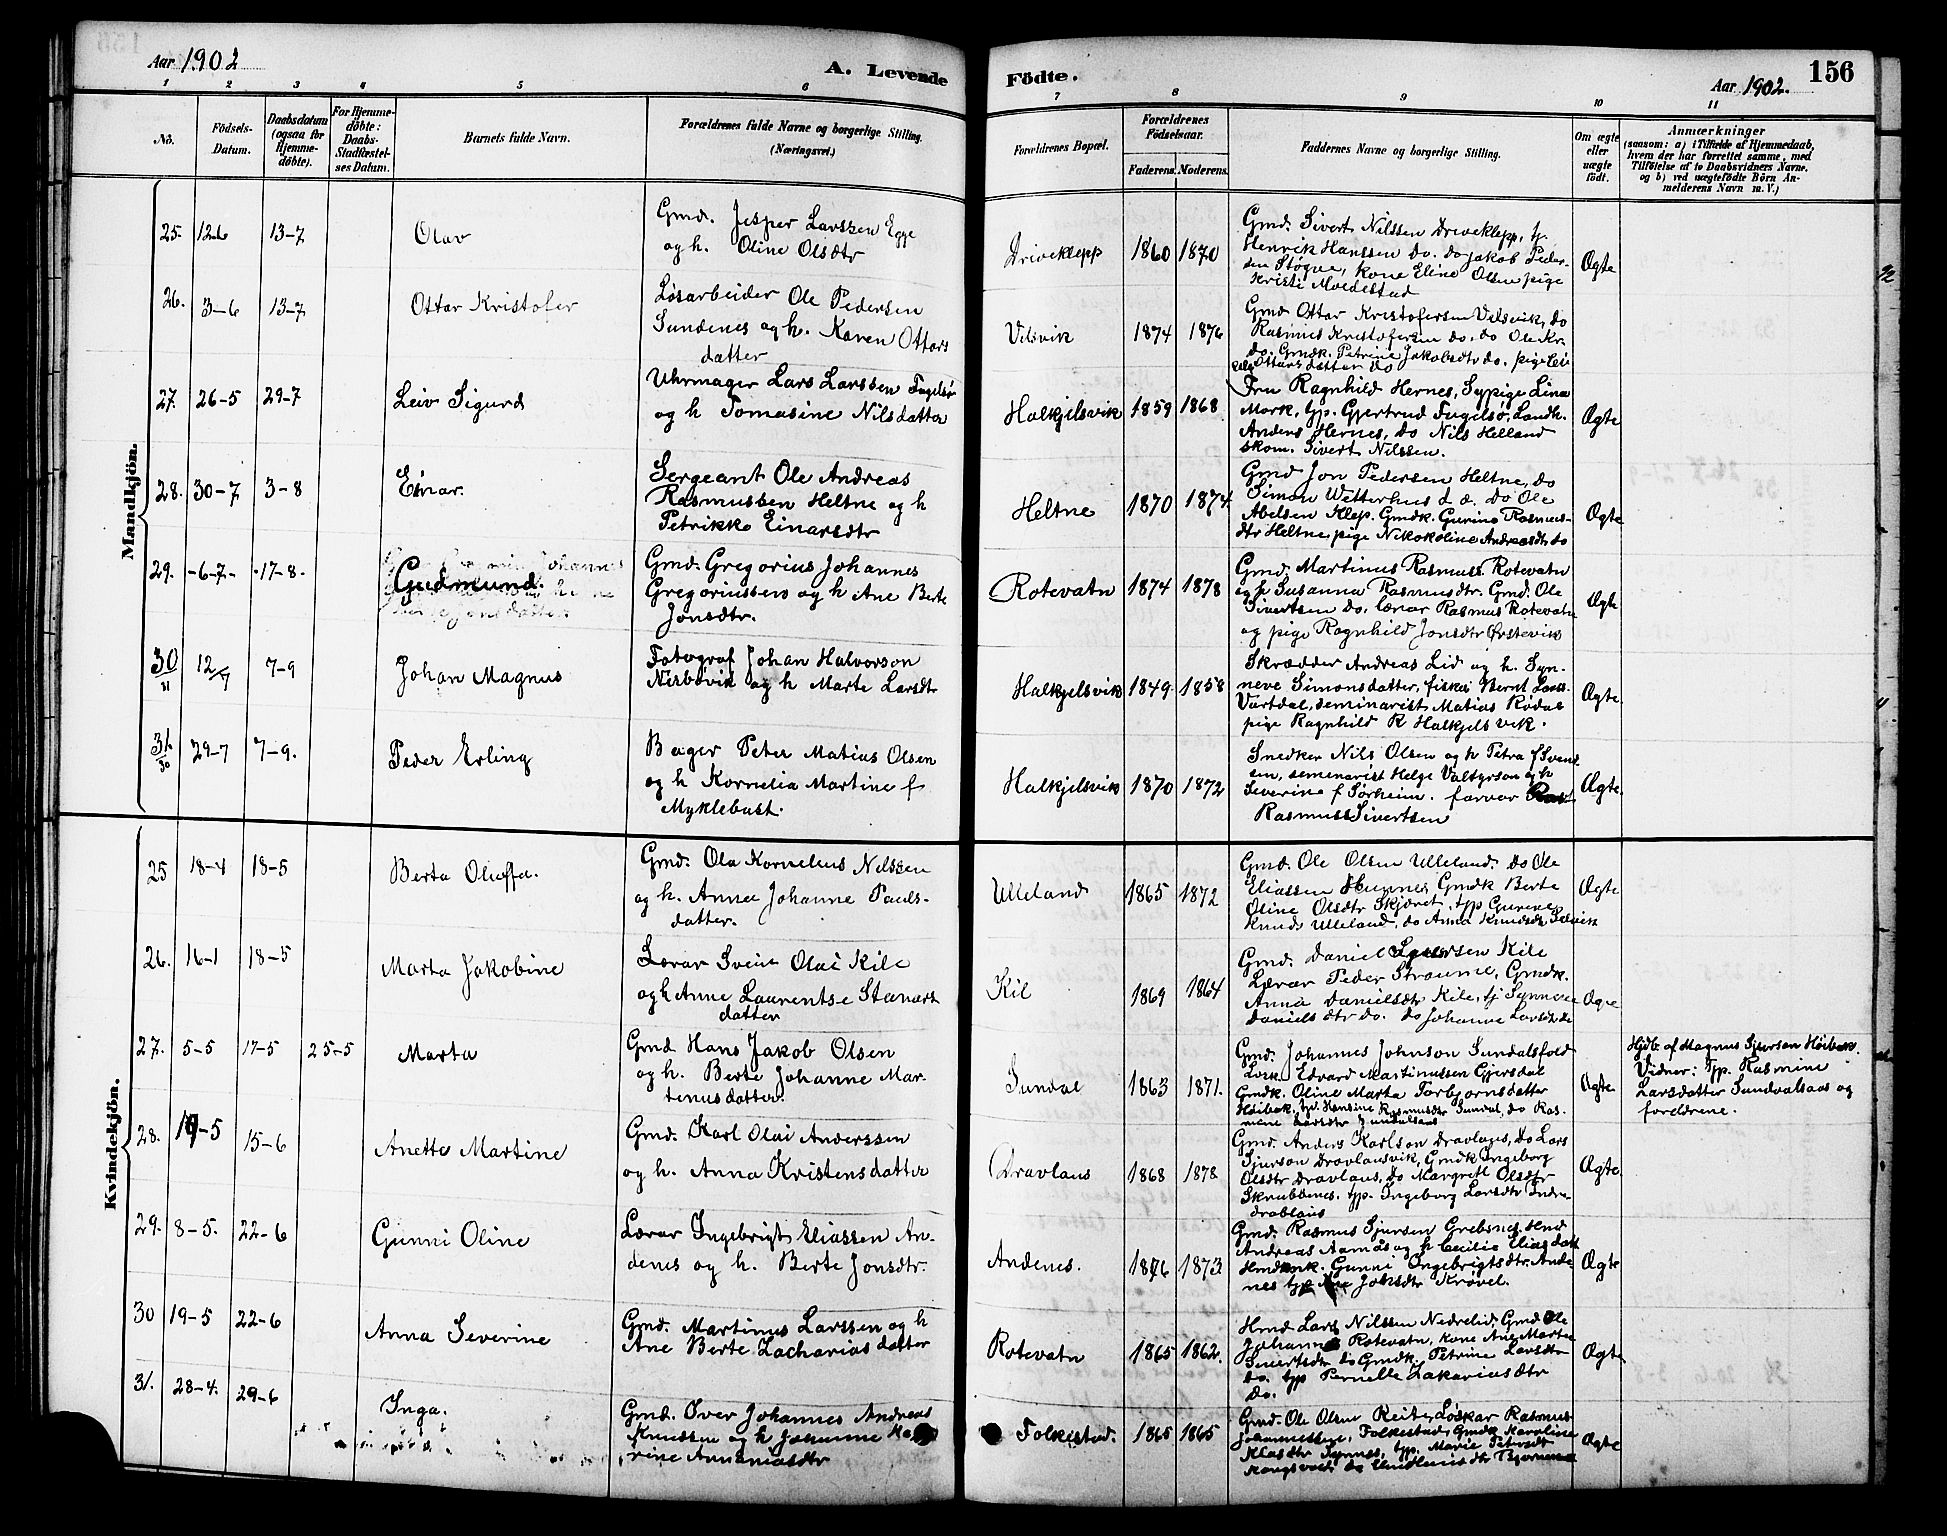 Aar 1902
A. Levende
Födte.
Aar 1902.
156
1 2 3 4 5 6 7 8 9 10 11
No.
Födsels-
Datum.
Daabsdatum
(ogsaa for
Hjemme-
döbte).
For Hjemme-
döbte:
Daabs-
Stadfæstel-
ses Datum.
Barnets fulde Navn.
Forældrenes fulde Navne og borgerlige Stilling.
(Næringsvei.)
Forældrenes Bopæl.
Forældrenes
Födselsaar.
Faderens. Moderens.
Faddernes Navne og borgerlige Stilling.
Om ægte
eller
uægte
födt.
Anmærkninger
(saasom: a) i Tilfælde af Hjemmedaab,
hvem der har forrettet samme, med
Tilföielse af to Daabsvidners Navne,
og b) ved uægtefödte Börn An-
melderens Navn m. V.)
Mandkjön.
25. 12-6 13-7 Olav
Gmd. Jesper Larssen Egge
og h. Oline Olsdtr
Driveklepp 1860 1870
Gmd. Sivert Nilssen Driveklepp, tj.
Henrik Hanssen do. do Jakob Peder-
sen Støyva, kone Eline Olsen pige
Kristi Moldestad
Ægte
26. 3-6 13-7 Ottar Kristofer
Løsarbeider Ole Pedersen
Sundenes og h. Karen Ottars
datter
Velsvik 1874 1876
Gmd Ottar Kristofersen Velsvik, do
Rasmus Kristofersen do. do Ole Kr.
do. Gmdk. Petrine Jakobsdtr do. pige
Ottarsdatter do
27. 26-5 29-7 Leiv Sigurd
Uhrmager Lars Larssen Fugelsø
og h Tomasine Nilsdatter
Halkjelsvik 1859 1868
Fru Ragnhild Hernes, Sypige Lina
Mork, tjp. Gjertrud Fugelsø, Landh.
Anders Hernes, do Nils Helland
skom. Sivert Nilssen.
Ægte
28. 30-7 3-8 Einar.
Sergeant Ole Andreas
Rasmussen Heltne og h
Petrikke Einarsdtr
Heltne 1870 1874.
Gmd Jon Pedersen Heltne, do
Simon Wetterhus d æ. do Ole
Abelsen Klep. Gmdk. Gurine Rasmus-
dtr Heltne, pige Nikokoline Andreasdtr do
Ægte
29. -6-7- -17-8- Gudmund.
Gmd. Gregorius Johannes
Gregoriussen og h Ane Berte
Jonsdtr.
Rotevatn 1874 1878
Gmd. Martinus Rasmuss. Rotevatn
og h Susanna Rasmusdtr. Gmd. Ole
Sivertsen do. lærar Rasmus Rotevatn
og pige Ragnhild Jonsdtr Ørstevik
30/31 12/7 7-9 Johan Magnus
Fotograf Johan Halvorson
Nerbøvik og h Marte Larsdtr
Halkjelsvik 1849 1858
Skrædder Andreas Lid og h. Syn-
neve Simonsdatter, fisker Bernt Larss.
Vartdal, seminarist Matias Rødal
pige Ragnhild R Halkjelsvik.
Ægte
31/30 29-7 7-9. Peder Erling
Bager Peter Matias Olsen
og h Kornelia Martine f
Myklebust.
Halkjelsvik 1870 1872
Snedker Nils Olsen og h Petra f Svend-
sen, seminarist Helge Valtyrson og h
Severine f Sørheim. farvar
Rasmus Sivertsen
Ægte.
Kvindekjön.
25 18-4 18-5 Berta Oluffa.
Gmd. Ola Kornelius Nilssen
og h. Anna Johanne Pauls-
datter.
Ulleland 1865 1872
Gmd. Ole Olsen Ulleland. do Ole
Eliassen Hunnes Gmdk Berte
Oline Olsdtr Skjæret, tjp Gurene
Knuds Ulleland, do Anna Knudsdtr
Ægte
26. 16-1 18-5 Marta Jakobine
Lærar Svein Olai Kile
og h Anne Laurentse Stenars
datter
Kil 1869 1864
Gmd. Daniel Kile
Lærar Peder Straume, Gmdk.
Anna Danielsdtr Kile, tj Synneva
Danielsdtr do. do Johanne Larsdtr do
27. 5-5 17-5 25-5 Marta
Gmd Hans Jakob Olsen
og h. Berte Johanne Mar-
tinusdatter.
Sundal 1863 1871.
Gmd. Johannes Johnson Sundalsfold
Losk. Edvard Martinussen Gjersdal
Gmdk. Oline Marta Torbjørnsdatter
Høibak, tjp. Hansine Rasmusdtr Sundal, do Ras-
mine Larsdtr Sundalsaas
Ægte
Hjdb. af Magnus Sjursen Høibak.
Vidner: Tjp. Rasmine
Larsdatter Sundalsaas og
forældrene.
28. 14-5 15-6 Anette Martine
Gmd. Karl Olai Anderssen
og h. Anna Kristensdatter
Dravlaus 1868 1878
Gmd. Anders Karlson Dravlaus, do Lars
Sjurson Dravlausvik, Gmdk Ingeborg
Olsdtr Dravlaus, do Margrett Olsdtr
Skrubbenes. tjp. Ingeborg Larsdtr Indre-
drablaus
Ægte
29. 8-5. 22-6 Gunni Oline
Lærar Ingebrigt Eliassen An-
denes og h. Berte Jonsdtr.
Andenes. 1876 1873
Gmd. Rasmus Sjursen Grebsnes, Hmd
Andreas Aamås og h Cecilie Eliasdatt
Hmdenk. Gunni Ingebrigtsdtr. Ande-
nes tjp Johsdtr Krøvel.
Ægte
30 19-5 22-6 Anna Severine
Gmd. Martinus Larssen og h
Ane Berte Zachariasdatter
Rotevatn 1865 1862.
Hmd Lars Nilssen Nedrelid, Gmd Ole
Johannes Rotevatn, kone Ane Marta
Sivertsdtr do Gmdk. Petrine Larsdtr
do. tjp Pernelle Zakariasdtr
do.
Ægte
31. 28-4. 29-6 Inga.
Gmd. Iver Johannes Andreas
Knudsen og h Johanne Ka
rine Annaniasdtr
Folkestad. 1865 1865
Gmd. Ole Olsen Reite, Løskar Rasmus
Johannessen, Folkestad, Gmdk Karoline
Klasdtr Synnes, tjp. Marie Petersdt
Ægte